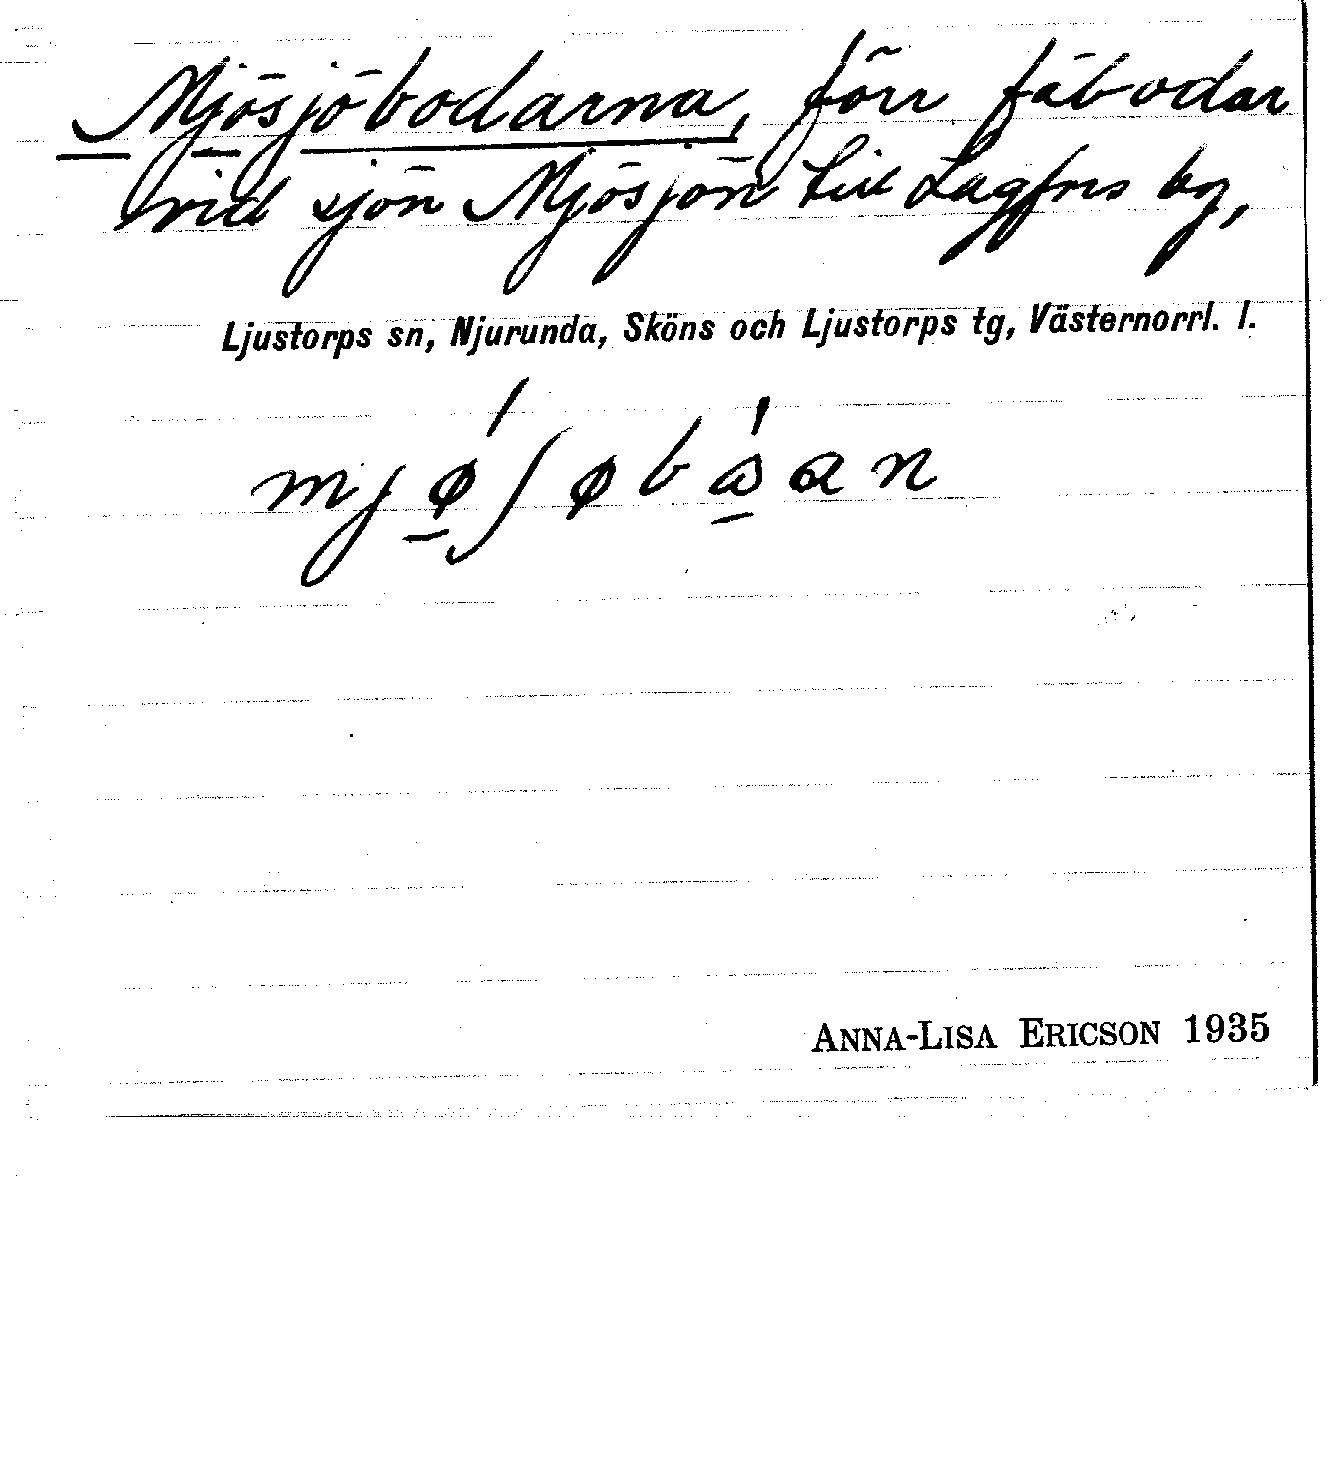 Mjösjöbodarna, förr fäbodar
vid sjön Mjösjön till Lagfors by,
Ljustorps sn, Njurunda, Sköns och Ljustorps tg, Västernorrl. l.
mjǿ̱ʃøbά̱αn
ANNA-LISA ERICSON 1935